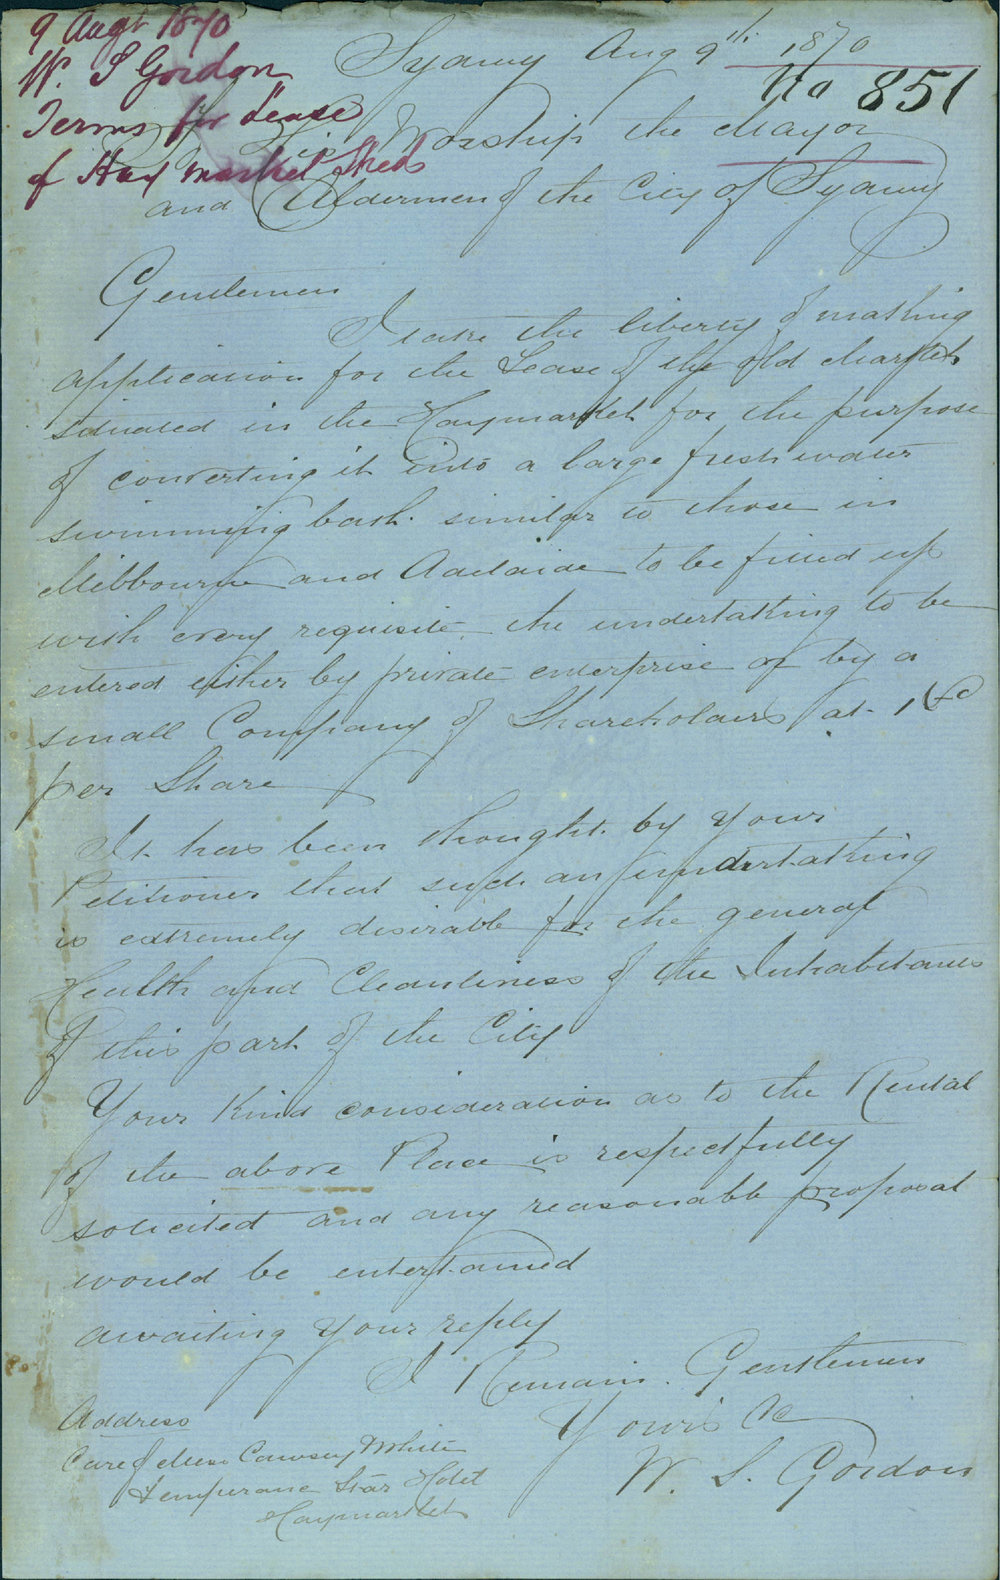 9 Augt 1870
W. S Gordon
Terms for Lease
of Hay market Sheds
Sydney Aug 9th 1870
No 851
His Worship the Mayor
and Aldermen of the City of Sydney
Gentlemen
I take the liberty of making
application for the Lease of the old Markets
situated in the Haymarket for the purpose
of converting it into a large fresh water
swimming bath. similar to those in
Melbourne and Adelaide to be fitted up
with every requisite, the undertaking to be
entered either by private enterprise or by a
small Company of Shareholders at
per Share
It has been thought by your
Petitioner that such an undertaking
is extremely desirable for the general
Health and Cleanliness of the Inhabitants
of this part of the City
Your Kind consideration as to the Rental
of the above Place is respectfully
solicited and any reasonable proposal
would be entertained
awaiting your reply
I Remain. Gentlemen
Yours &c
W. S. Gordon
Address
Care of White
Temperance Star Hotel
Haymarket